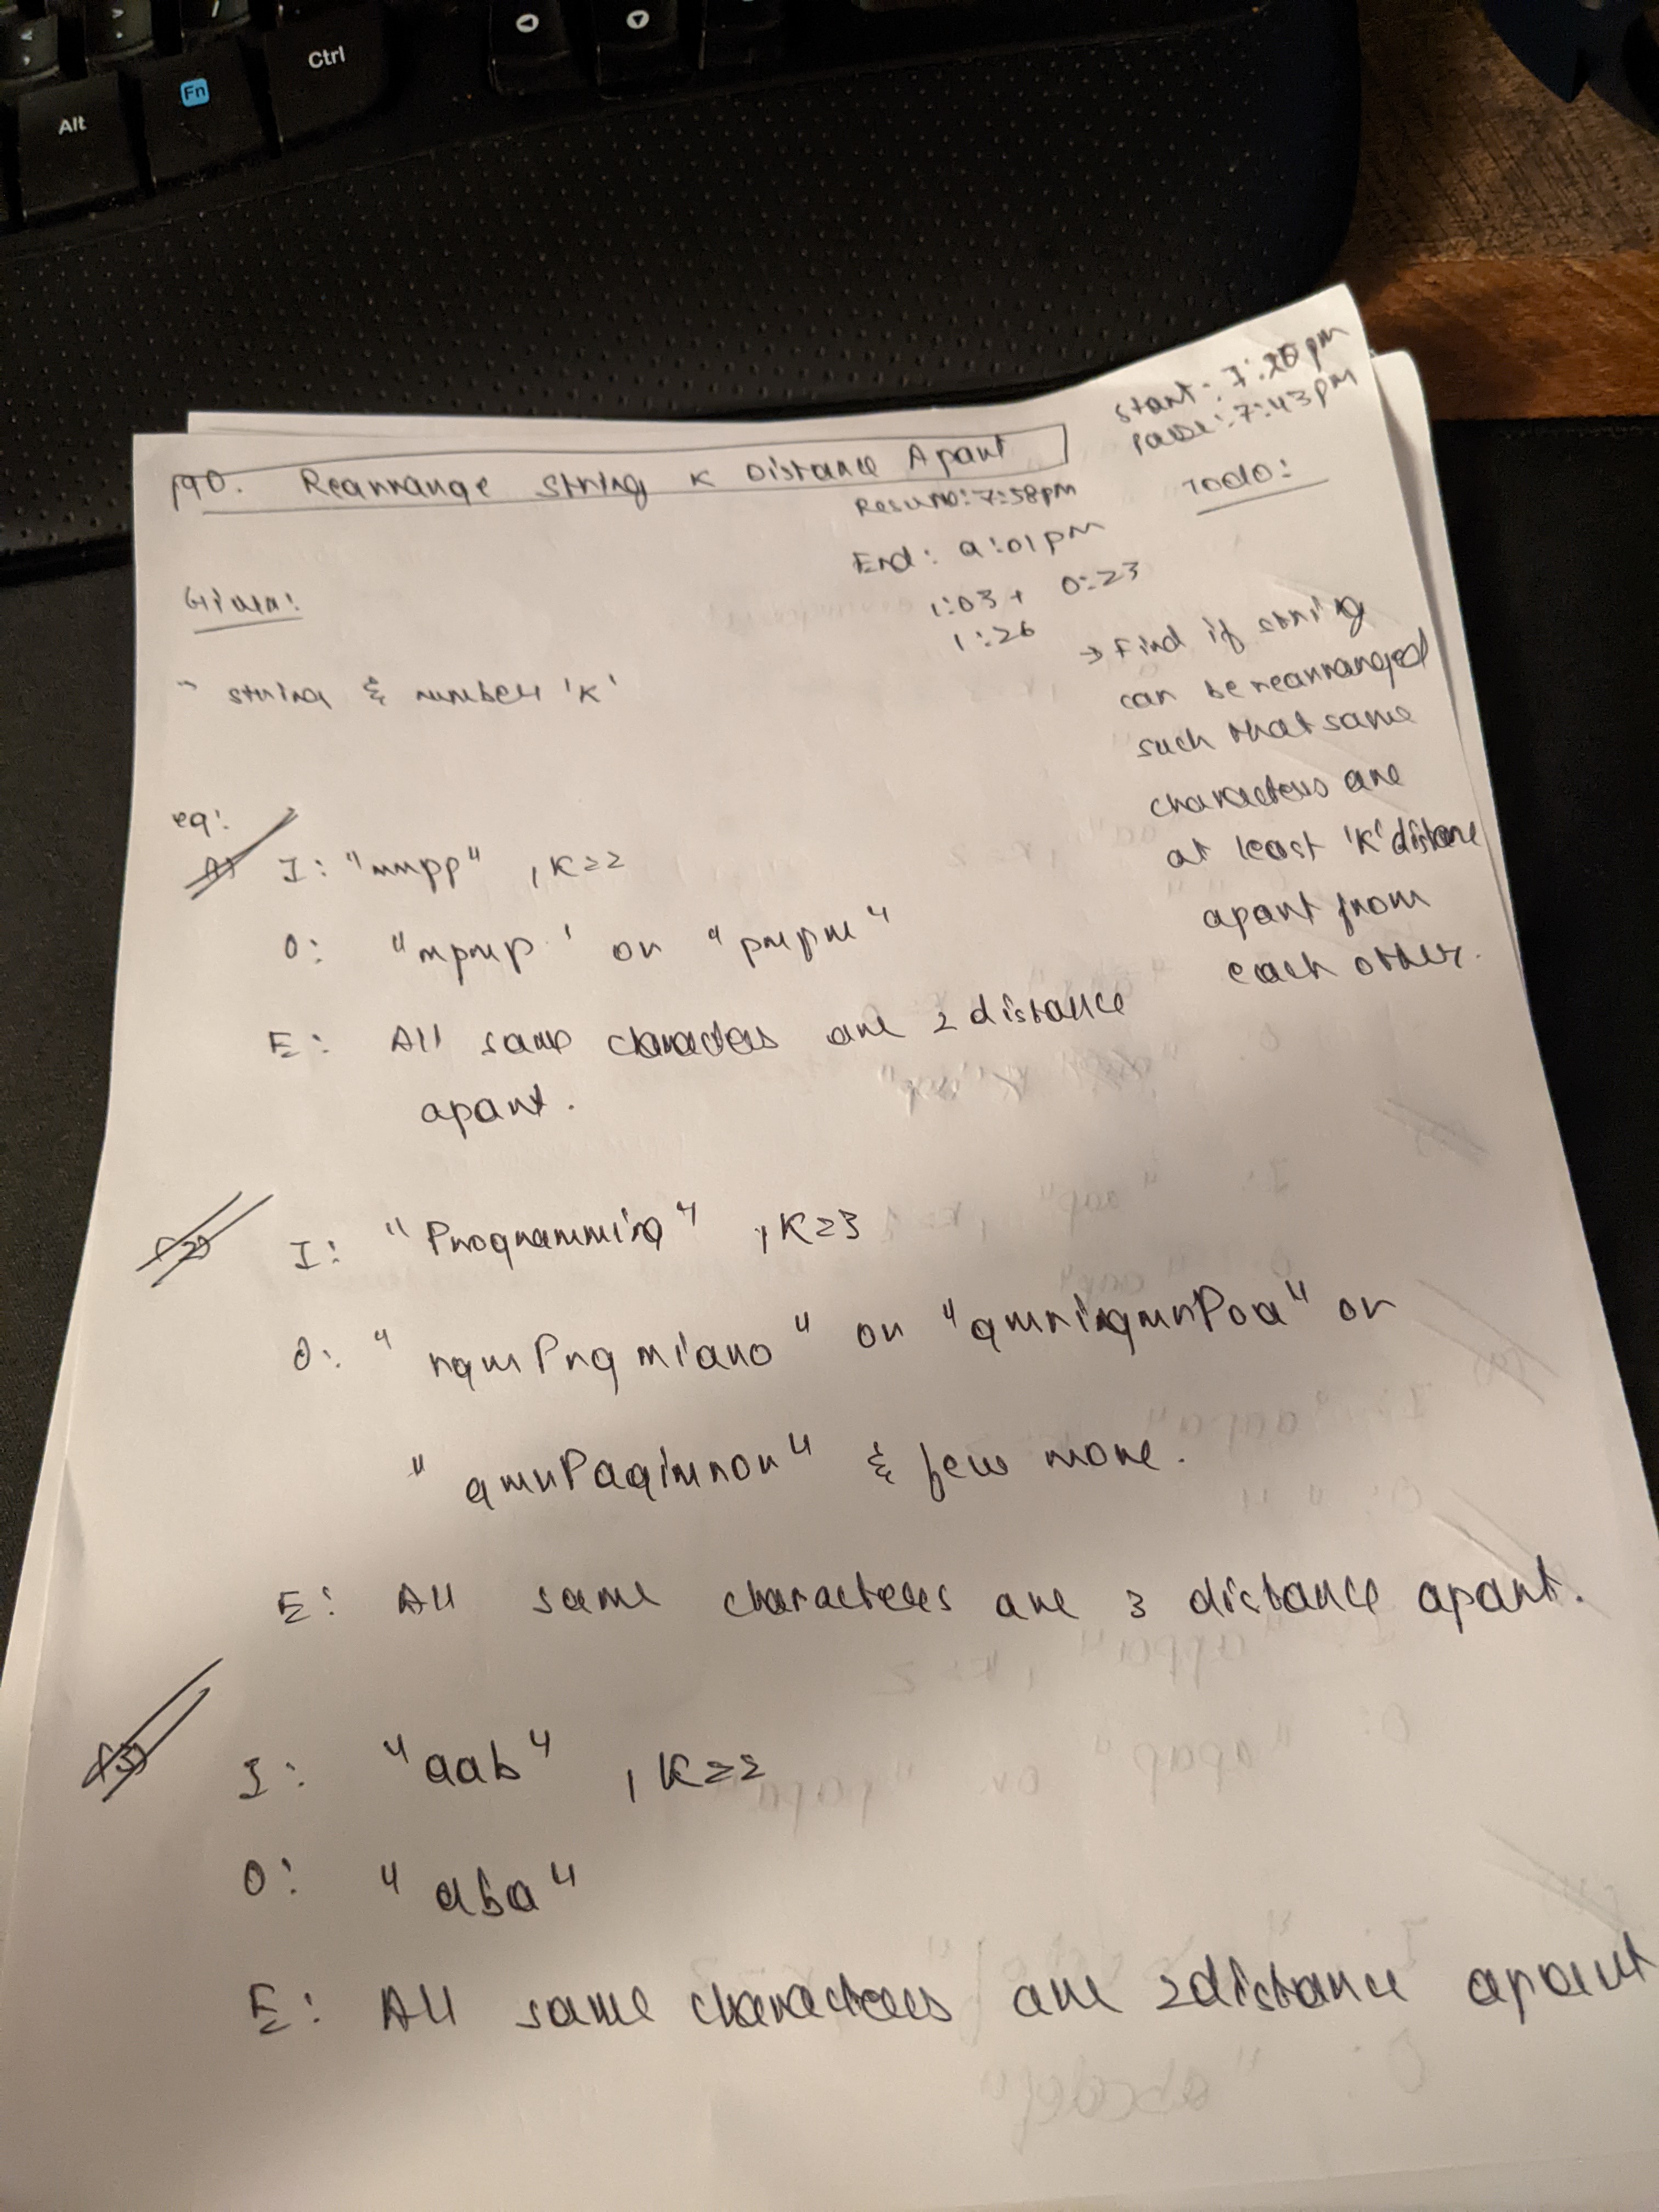 Alt
Fn
Ctrl
190. Rearrange String K Distance Apart
Start: 7:20pm
Pause: 7:43pm
Resume: 7:58pm
End: 9:01pm
1:03 + 0:23
1:26
Todo:
→ Find if string
can be rearranged
such that same
characters are
at least 'K' distance
apart from
each other.
Given:
- string & number 'K'
eg:
(1) I: "mmpp", K=2
O: "mpmp" or "pmpm"
E: All same characters are 2 distance
apart.
(2) I: "Programming", K=3
O: "rgmPrgmiano" or "gmringmrPoa" or
"gmrPagimnor" & few more.
E: All same characters are 3 distance apart.
(3) I: "aab", K=2
O: "aba"
E: All same characters are 2 distance apart